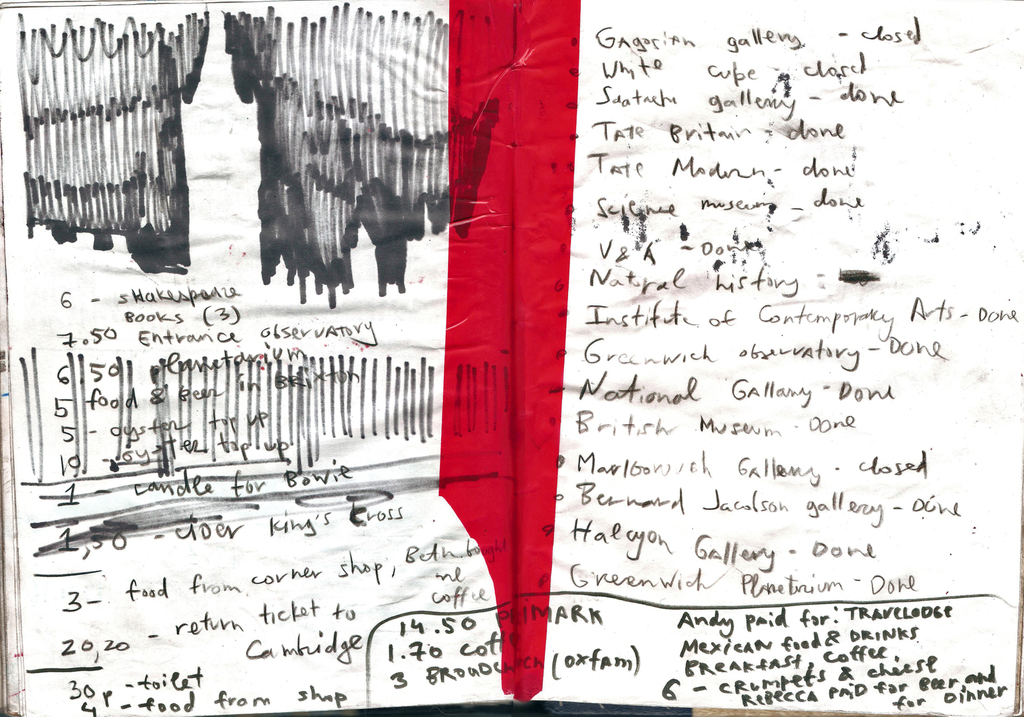 6 - SHakespeare
BOOKS (3)
7.50 Entrance observatory
6.50 planetarium
5 - food & Beer in BRIXTON
5 - oyster top up
10 - oyster top up
1 - candle for Bowie
1,50 - cider King's Cross
3 - food from corner shop, Beth bought
me
coffee
20,20 - return ticket to
Cambridge
30p - toilet
4 - food from shop
14.50 PRIMARK
1.70 coffee
3 (OXFAM)
GAgosian gallery - closed
White cube - closed
Saatachi gallery - done
TATE Britain - done
TATE Modern - done
Science museum - done
V & A - Done
Natural history -
Institute of Contemporary Arts - Done
Greenwich observatory - Done
National Gallary - Done
British Museum - Done
Gallery - closed
Bernard Jacolson gallery - Done
Halcyon Gallery - Done
Greenwich Planetarium - Done
Andy paid for: TRAVELODGE
MEXICAN food & DRINKS
BREAKFAST, Coffee,
6 - CRUMPETS & cheese
REBECCA PAID for Beer and
for Dinner